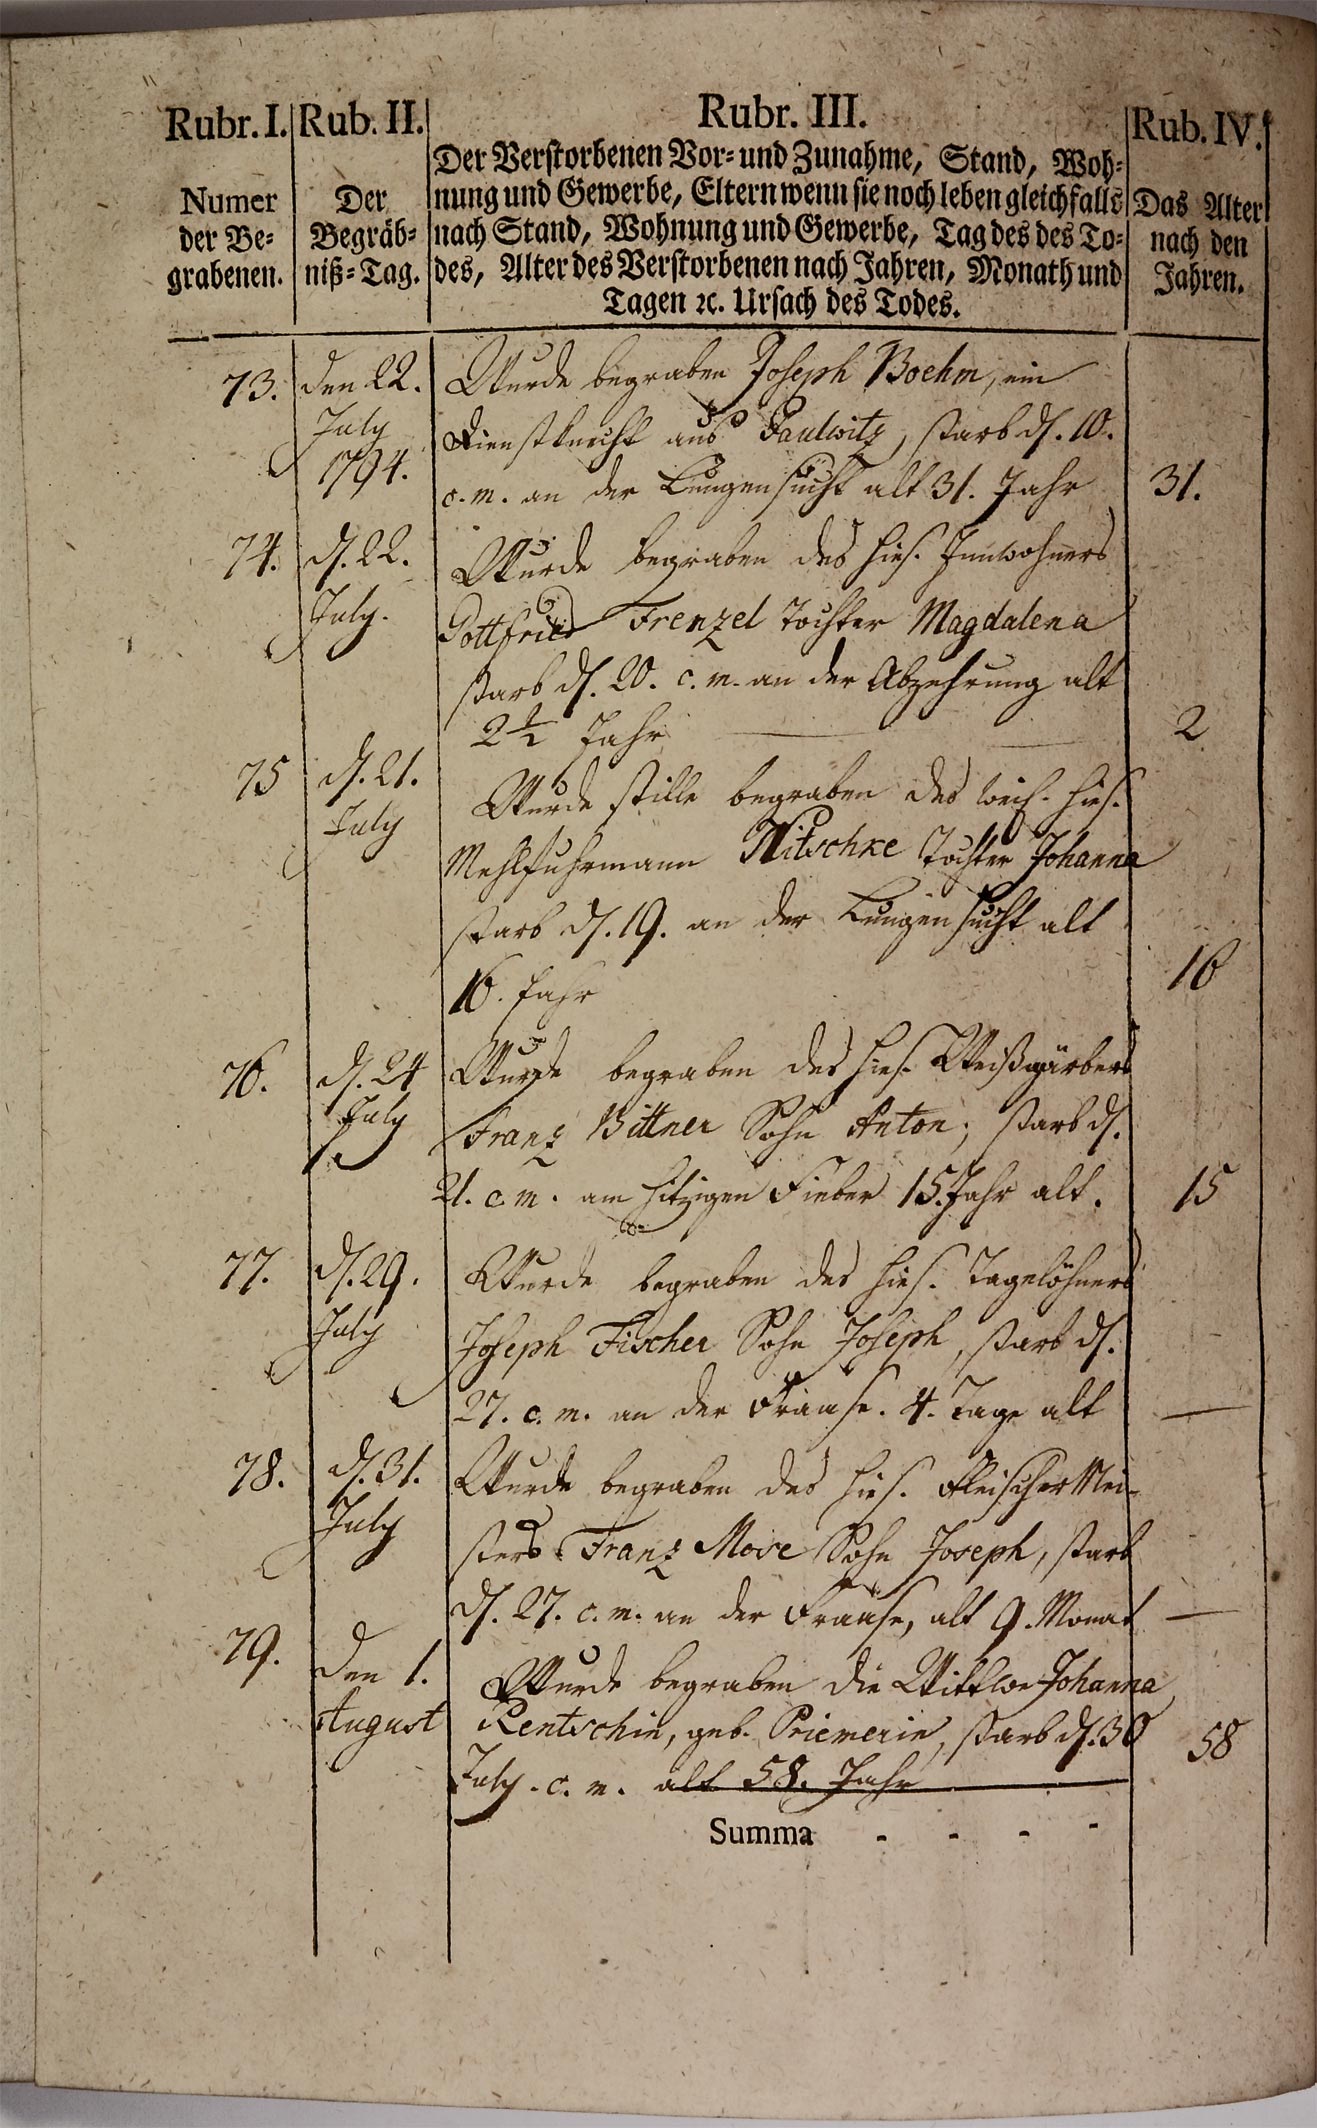 Rubr. I. Rub. II. Rubr. III. Rub. IV.
Numer
der Be=
grabenen.
Der
Begräb=
niß=Tag.
Der Verstorbenen Vor= und Zunahme, Stand, Woh=
nung und Gewerbe, Eltern wenn sie noch leben gleichfalls
nach Stand, Wohnung und Gewerbe, Tag des des To=
des, Alter des Verstorbenen nach Jahren, Monath und
Tagen ꝛc. Ursach des Todes.
Das Alter
nach den
Jahren.
73. den 22. Wurde begraben Joseph Boehm, ein
July Dienstknecht aus Paulwitz, starb d. 10.
1794. c. m. an der Lungensucht alt 31. Jahr 31.
74. d. 22. Wurde begraben des hies. Innwohners
July. Gottfried Frenzel Tochter Magdalena
starb d. 20. c. m. an der Abzehrung alt
2½ Jahr 2
75 d. 21. Wurde stille begraben des weil. hies.
July Mehlfuhrmann Nitschke Tochter Johanna
starb d. 19. an der Lungensucht alt
16. Jahr 16
76. d. 24 Wurde begraben des hies. Weißgärbers
July Franz Bittner Sohn Anton, starb d.
21. c m. am hitzigen Fieber 15. Jahr alt. 15
77. d. 29. Wurde begraben des hies. Tagelöhners
July Joseph Fischer Sohn Joseph, starb d.
27. c. m. an der Fraase. 4. Tage alt —
78. d. 31. Wurde begraben des hies. Fleischer Mei-
July sters Franz Move Sohn Joseph, starb
d. 27. c. m. an der Fraase, alt 9. Monat —
79. den 1. Wurde begraben die Wittwe Johanna
August Rentschin, geb. Priemerin, starb d. 30
July. c. m. alt 58. Jahr 58
Summa - - - -